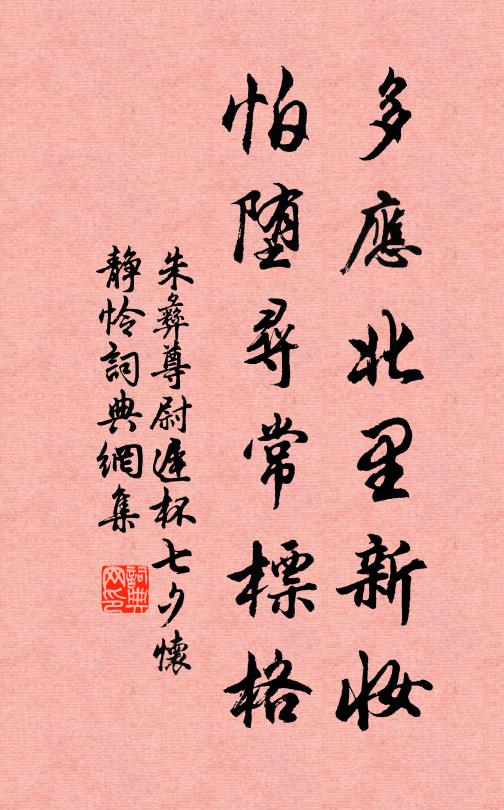 多應北里新妝
怕墮尋常標格
朱彝尊尉遲杯七夕懷
靜憐詞典網集
詞典
网印